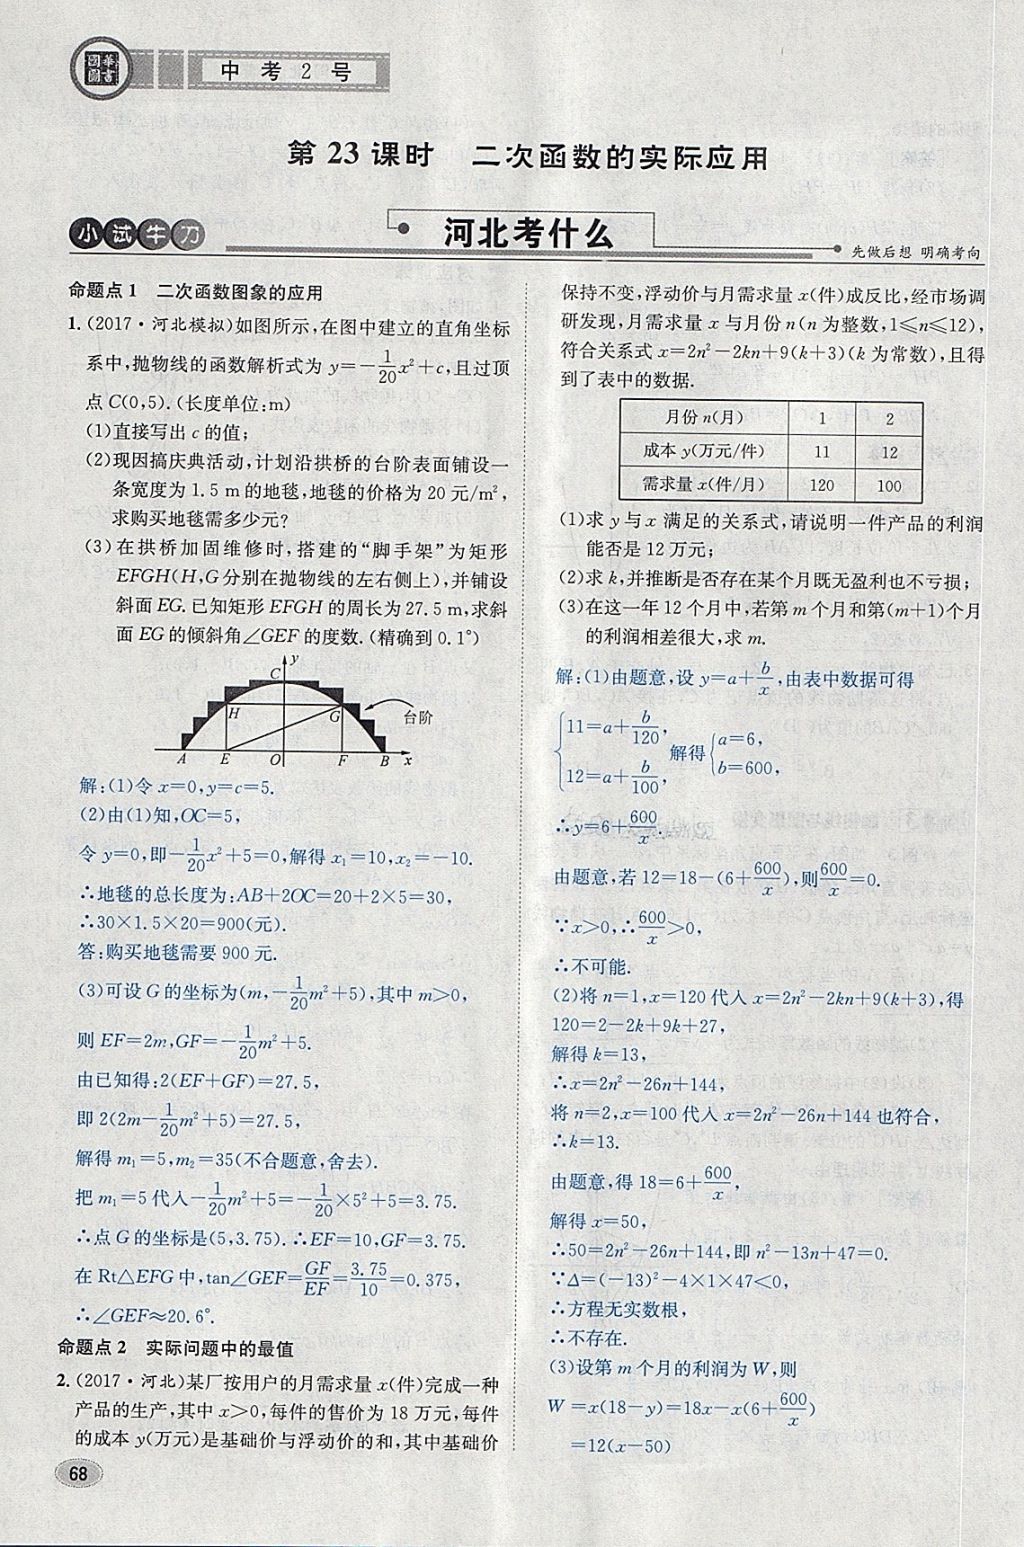 圖華
圖書
中考2号
第23课时　二次函数的实际应用
小试牛刀
河北考什么
先做后想 明确考向
命题点1　二次函数图象的应用
1.(2017·河北模拟)如图所示,在图中建立的直角坐标
系中,抛物线的函数解析式为 y=-1/20x²+c,且过顶
点C(0,5).(长度单位:m)
(1)直接写出c的值;
(2)现因搞庆典活动,计划沿拱桥的台阶表面铺设一
条宽度为1.5 m的地毯,地毯的价格为20元/m²,
求购买地毯需多少元?
(3)在拱桥加固维修时,搭建的“脚手架”为矩形
EFGH(H,G分别在抛物线的左右侧上),并铺设
斜面EG.已知矩形EFGH的周长为27.5 m,求斜
面EG的倾斜角∠GEF的度数.(精确到0.1°)
y
C
H
G
台阶
A E O F B x
解:(1)令x=0,y=c=5.
(2)由(1)知,OC=5,
令y=0,即-1/20x²+5=0,解得x₁=10,x₂=-10.
∴地毯的总长度为:AB+2OC=20+2×5=30,
∴30×1.5×20=900(元).
答:购买地毯需要900元.
(3)可设G的坐标为(m,-1/20m²+5),其中m>0,
则EF=2m,GF=-1/20m²+5.
由已知得:2(EF+GF)=27.5,
即2(2m-1/20m²+5)=27.5,
解得m₁=5,m₂=35(不合题意,舍去).
把m₁=5代入-1/20m²+5=-1/20×5²+5=3.75.
∴点G的坐标是(5,3.75).∴EF=10,GF=3.75.
在Rt△EFG中,tan∠GEF=GF/EF=3.75/10=0.375,
∴∠GEF≈20.6°.
命题点2　实际问题中的最值
2.(2017·河北)某厂按用户的月需求量x(件)完成一种
产品的生产,其中x>0,每件的售价为18万元,每件
的成本y(万元)是基础价与浮动价的和,其中基础价
68
保持不变,浮动价与月需求量x(件)成反比,经市场调
研发现,月需求量x与月份n(n为整数,1≤n≤12),
符合关系式x=2n²-2kn+9(k+3)(k为常数),且得
到了表中的数据.
月份n(月) 1 2
成本y(万元/件) 11 12
需求量x(件/月) 120 100
(1)求y与x满足的关系式,请说明一件产品的利润
能否是12万元;
(2)求k,并推断是否存在某个月既无盈利也不亏损;
(3)在这一年12个月中,若第m个月和第(m+1)个月
的利润相差很大,求m.
解:(1)由题意,设y=a+b/x,由表中数据可得
{11=a+b/120, 12=a+b/100, 解得{a=6, b=600,
∴y=6+600/x.
由题意,若12=18-(6+600/x),则600/x=0.
∵x>0,∴600/x>0,
∴不可能.
(2)将n=1,x=120代入x=2n²-2kn+9(k+3),得
120=2-2k+9k+27,
解得k=13,
∴x=2n²-26n+144,
将n=2,x=100代入x=2n²-26n+144也符合,
∴k=13.
由题意,得18=6+600/x,
解得x=50,
∴50=2n²-26n+144,即n²-13n+47=0.
∵Δ=(-13)²-4×1×47<0,
∴方程无实数根,
∴不存在.
(3)设第m个月的利润为W,则
W=x(18-y)=18x-x(6+600/x)
=12(x-50)